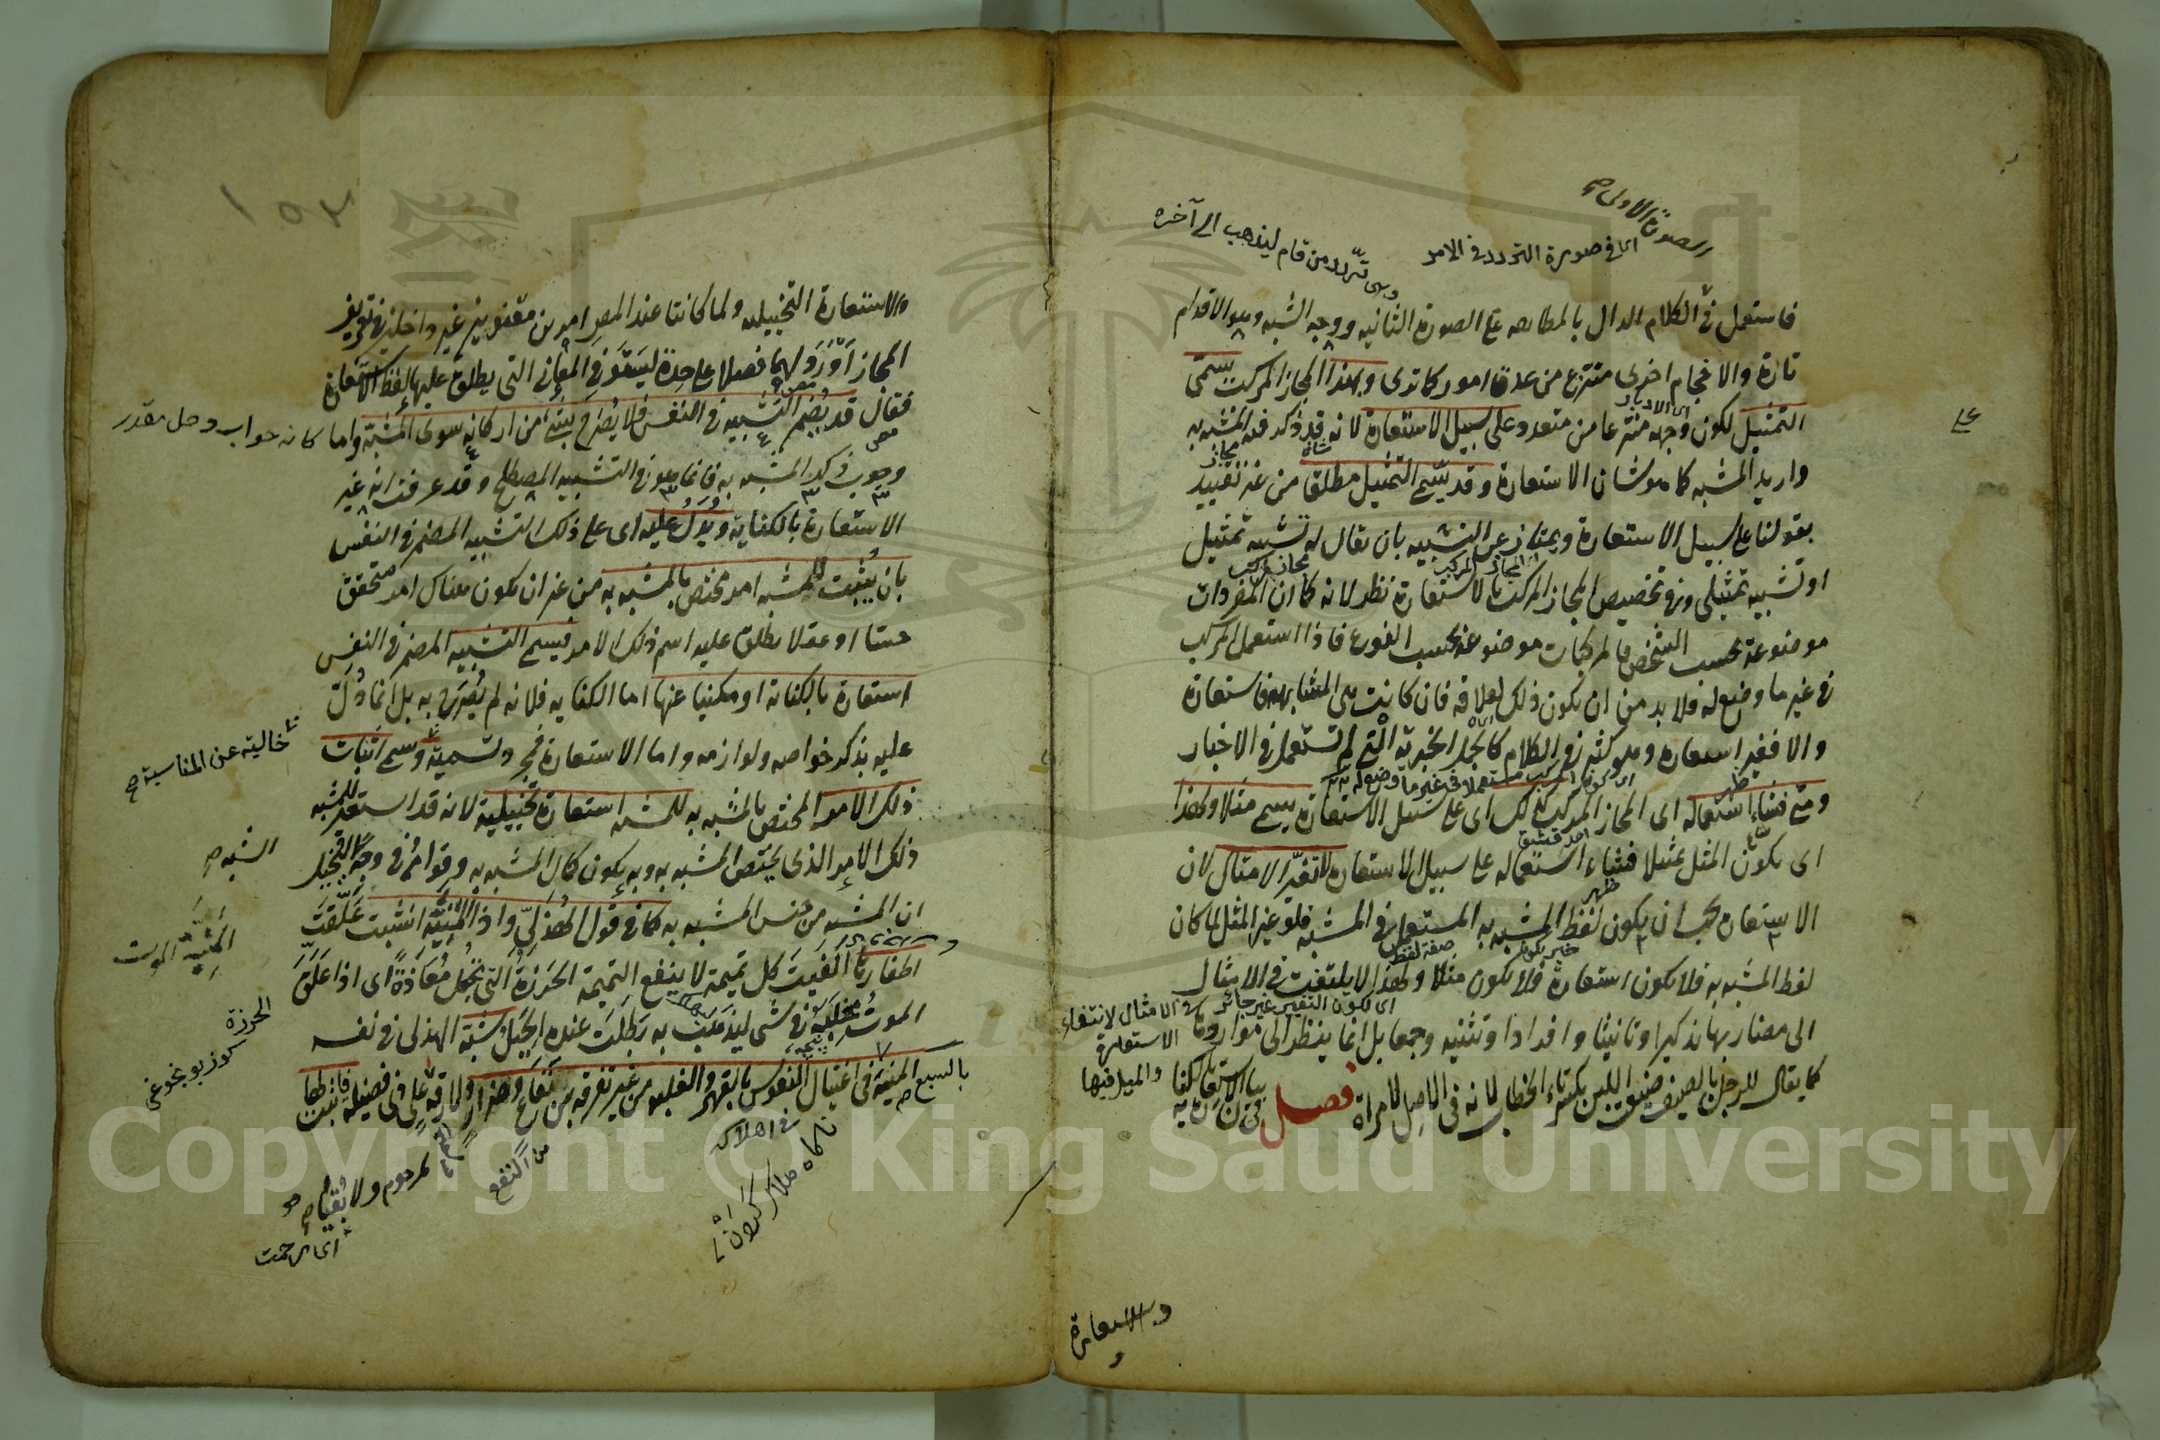 الصورة الاولى صح
اى فى صورة التردد فى الامر
وهى تردد من قام ليذهب الى آخره
فاستعمل فى الكلام الدال بالمطابقه على الصورة الثانيه ووجه الشبه وهو الاقدام
تارة والاحجام اخرى منتزع من عدة امور كما ترى وهذا المجاز المركب يسمى
التمثيل لكون وجهه منتزعا من متعدد على سبيل الاستعارة لانه قد ذكر فيه المشبه به
واريد المشبه كما هو شان الاستعارة وقد يسمى التمثيل مطلقا من غير تقييد
بقولنا على سبيل الاستعارة ويمتاز عن التشبيه بان يقال له تشبيه تمثيل
او تشبيه تمثيلى وفى تخصيص المجاز المركب بالاستعارة نظر لانه كما ان المفردات
موضوعة بحسب الشخص فالمركبات موضوعة بحسب النوع فاذا استعمل المركب
فى غير ما وضع له فلا بد من ان يكون ذلك لعلاقة فان كانت هى المشابهة فاستعارة
والا فغير استعارة وهو كثير فى الكلام كالجمل الخبرية التى لم تستعمل فى الاخبار
ومتى فشاء استعماله اى المجاز المركب كذلك اى على سبيل الاستعارة يسمى مثلا ولهذا
اى يكون المثل تمثيلا فشاء استعماله على سبيل الاستعارة لا تغير الامثال لان
الاستعارة يجب ان يكون لفظ المشبه به المستعمل فى المشبه فلو غير المثل لما كان
لفظ المشبه به فلا يكون استعارة فلا يكون مثلا ولهذا لا يلتفت فى الامثال
الى مضاربها تذكيرا وتانيثا وافرادا وتثنيه وجمعا بل انما ينظر الى مواردها
كما يقال للرجل بالصيف ضيعت اللبن بكسر تاء الخطاب لانه فى الاصل لامراة فصل
فى بيان الاستعارة بالكناية
والاستعارة
١٥٣
والاستعارة التخييليه ولما كانتا عند المصر امرين معنويين غير داخلين فى تعريف
المجاز اورد لهما فصلا على حدة ليستوفى المعانى التى يطلق عليها لفظ الاستعارة
فقال قد يضمر التشبيه فى النفس فلا يصرح بشئ من اركانه سوى المشبه واما
كانه جواب دخل مقدر
وجوب ذكر المشبه به فانما هو فى التشبيه المصطلح وقد عرفت انه غير
الاستعارة بالكناية ويدل عليه اى على ذلك التشبيه المضمر فى النفس
بان يثبت للمشبه امر مختص بالمشبه به من غير ان يكون هناك امر متحقق
حسا او عقلا يطلق عليه اسم ذلك الامر فيسمى التشبيه المضمر فى النفس
استعارة بالكناية او مكنيا عنها اما الكنايه فلانه لم يصرح به بل انما دل
عليه بذكر خواصه ولوازمه واما الاستعارة فمجرد تسمية
خالية عن المناسبة صح
ويسمى اثبات
ذلك الامر المختص بالمشبه به للمشبه استعارة تخييلية لانه قد استعير للمشبه
ذلك الامر الذى يختص المشبه به وبه يكون كمال المشبه به وقوامه فى وجه
الشبه صح
ان المشبه من جنس المشبه به كما فى قول الهذلى واذا المنية انشبت علقت
المنية الموت
اظفارها الفيت كل تميمة لا ينفع التميمة الخرزة التى تجعل معاذة اى اذا علق
الخرزة
كوز بونجوغى
الموت مخلبه فى شى ليذهب به بطلت عنده الحيل شبه الهذلى فى نفسه
المنية
بالسبع صح
فى اغتيال النفوس بالقهر والغلبة من غير تفرقة بين نفاع وضرار ولا رقة
لمرحوم ولا بقيا صح
اى رحمت
من النفع
فى اهلاكه